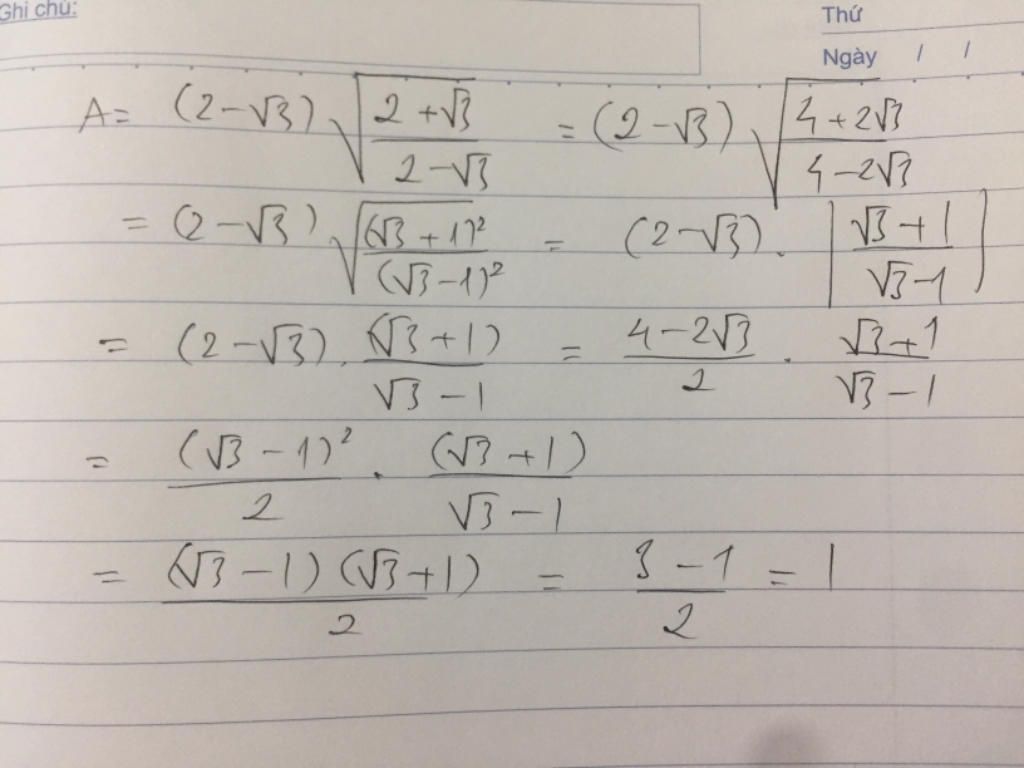 Ghi chú:
Thứ
Ngày / /
A = (2 - √3) √((2 + √3)/(2 - √3)) = (2 - √3) √((4 + 2√3)/(4 - 2√3))
= (2 - √3) √((√3 + 1)²/(√3 - 1)²) = (2 - √3) . |(√3 + 1)/(√3 - 1)|
= (2 - √3) . (√3 + 1)/(√3 - 1) = (4 - 2√3)/2 . (√3 + 1)/(√3 - 1)
= (√3 - 1)²/2 . (√3 + 1)/(√3 - 1)
= (√3 - 1)(√3 + 1)/2 = (3 - 1)/2 = 1